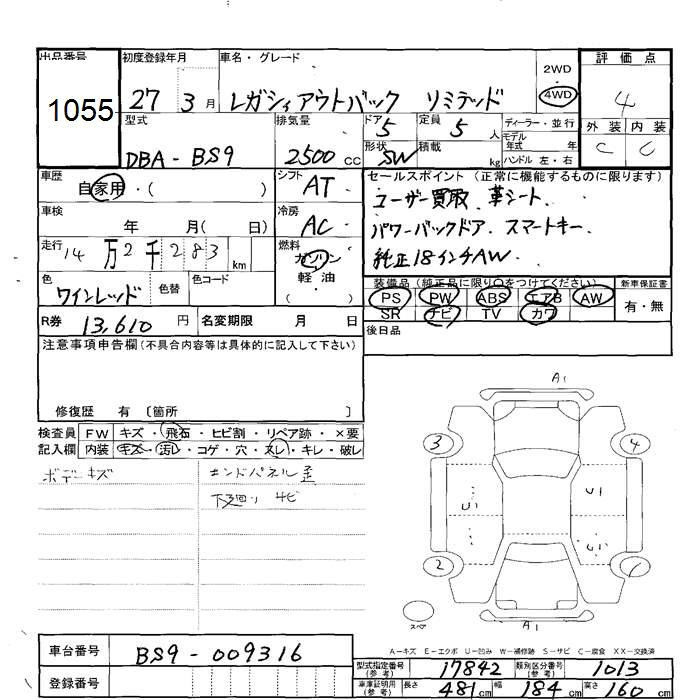 出品番号 初度登録年月 車名・グレード 2WD 評価点
1055 27 3月 レガシィアウトバック リミテッド 4WD 4
型式 排気量 ドア 定員 ディーラー・並行 外装 内装
DBA-BS9 2500cc 5 5人 モデル年式 年 C C
形状 SW 積載 kg ハンドル 左・右
車歴 自家用・( ) シフト AT セールスポイント (正常に機能するものに限ります)
ユーザー買取、革シート、
車検 年 月( 日) 冷房 AC パワーバックドア、スマートキー、
走行 14万2千283km 燃料 ガソリン 純正18インチAW、
軽油
( )
色 ワインレッド 色替 色コード
装備品 (純正品に限り○をつけてください) 新車保証書
PS PW ABS エアB AW 有・無
SR ナビ TV カワ
R券 13,610円 名変期限 月 日 後日品
注意事項申告欄(不具合内容等は具体的に記入して下さい)
修復歴 有〔箇所 〕
検査員 FW キズ・飛石・ヒビ割・リペア跡・×要
記入欄 内装 キズ・汚レ・コゲ・穴・スレ・キレ・破レ
ボデーキズ エンドパネル歪
下廻り サビ
A1
3 4
U1 U1
U1 U1
2 1
スペア A1
A-キズ E-エクボ U-凹み W-補修跡 S-サビ C-腐食 XX-交換済
車台番号 BS9-009316
登録番号
型式指定番号(参考) 17842 類別区分番号(参考) 1013
車庫証明用(参考) 長さ 481cm 幅 184cm 高さ 160cm